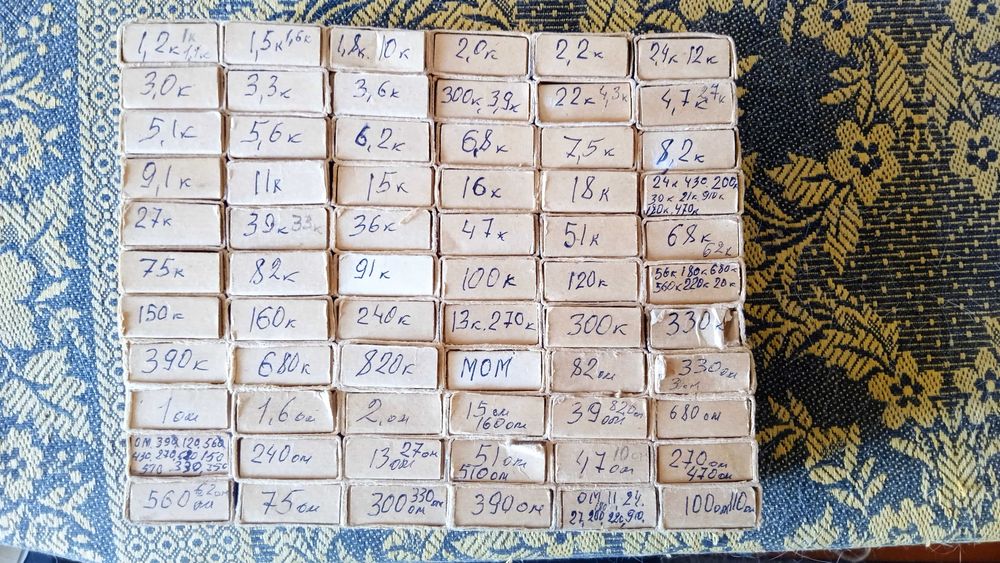 1,2к 1к 1,1к
1,5к 1,6к
1,8к 10к
2,0к
2,2к
2,4к 12к
3,0к
3,3к
3,6к
300к, 3,9к
22к 4,3к
4,7к 27к
5,1к
5,6к
6,2к
6,8к
7,5к
8,2к
9,1к
11к
15к
16к
18к
24к 430 200к
30к 21к 910к
120к 470к
27к
39к 33к
36к
47к
51к
68к
62к
75к
82к
91к
100к
120к
56к 180к 680к
560к 220к 20к
150к
160к
240к
13к. 270к
300к
330к
390к
680к
820к
МОМ
82ом
330ом
1ом
1,6ом
2ом
15ом
160ом
39ом 820ом
680ом
ОМ 390 120 560
430, 270 620 150
240ом
13ом 27ом
51ом
510ом
47ом 10ом
270ом
470ом
560ом 62ом
75ом
300ом 330ом
390ом
ОМ, 11, 24,
27, 200 220, 910,
100ом 110ом